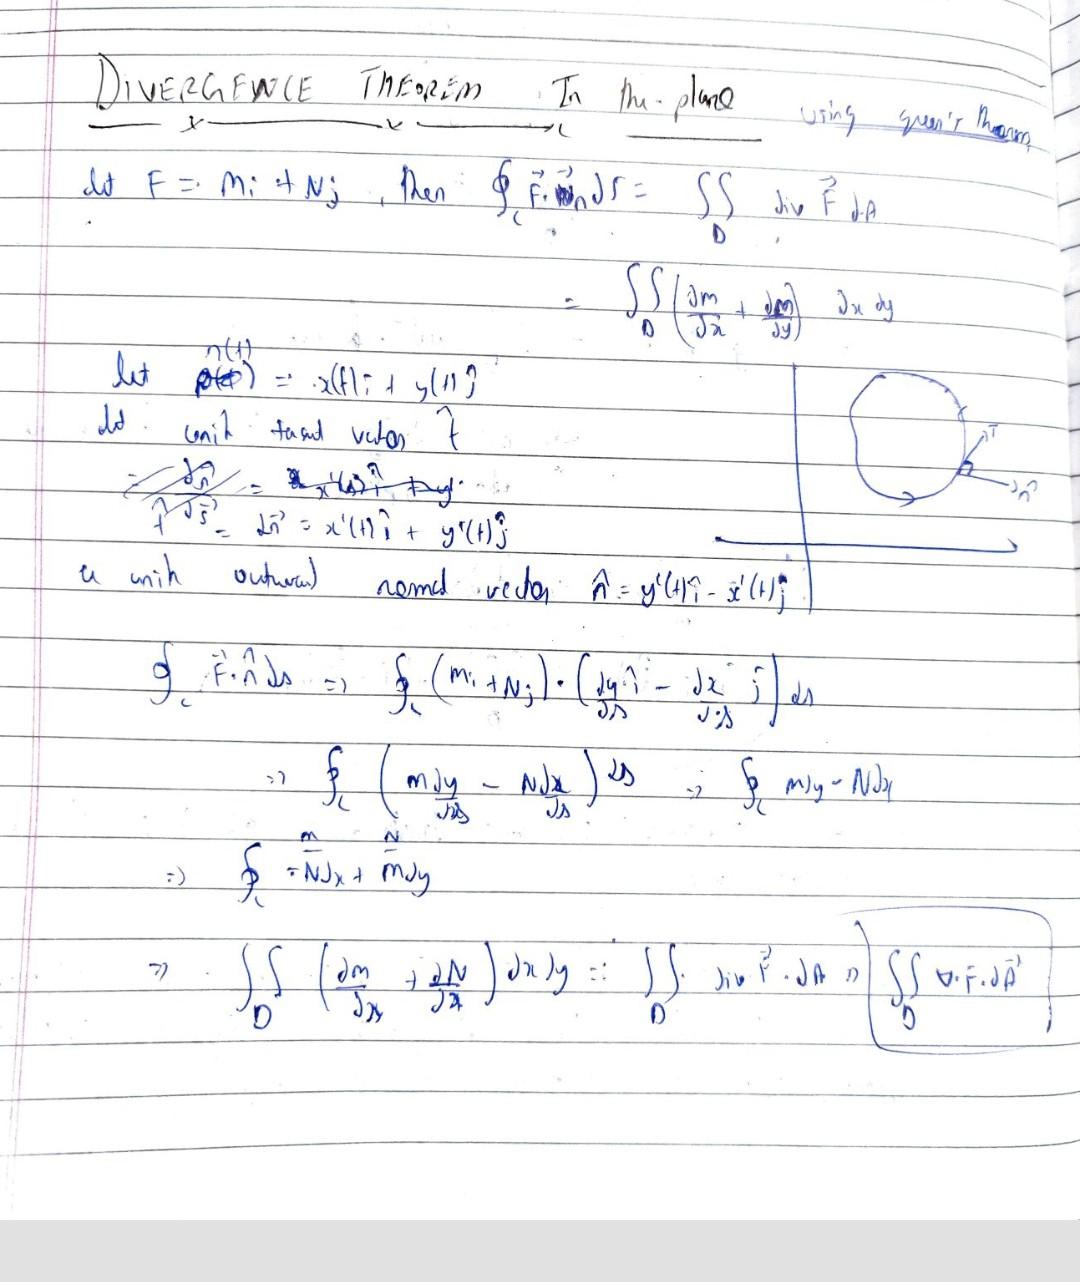 DIVERGENCE THEOREM In the plane using green's theorem
let F = Mi + Nj , then ∮_C F⃗·n ds = ∬_D div F⃗ dA
= ∬_D (∂m/∂x + ∂m/∂y) dx dy
let r(t) = x(t)i + y(t)j
let unit vector t̂
= x'(t)î + y'(t)ĵ
T
n̂
a unit outward normal vector n̂ = y'(t)î - x'(t)ĵ
∮_C F⃗·n̂ ds => ∮_C (Mi + Nj)·(dy/ds î - dx/ds j) ds
=> ∮_C (m dy/ds - N dx/ds) ds => ∮_C mdy - Ndx
M N
=> ∮_C -Ndx + mdy
=> ∬_D (∂m/∂x + ∂N/∂x) dx dy = ∬_D div F⃗ · dA => ∬_D ∇·F·dA⃗